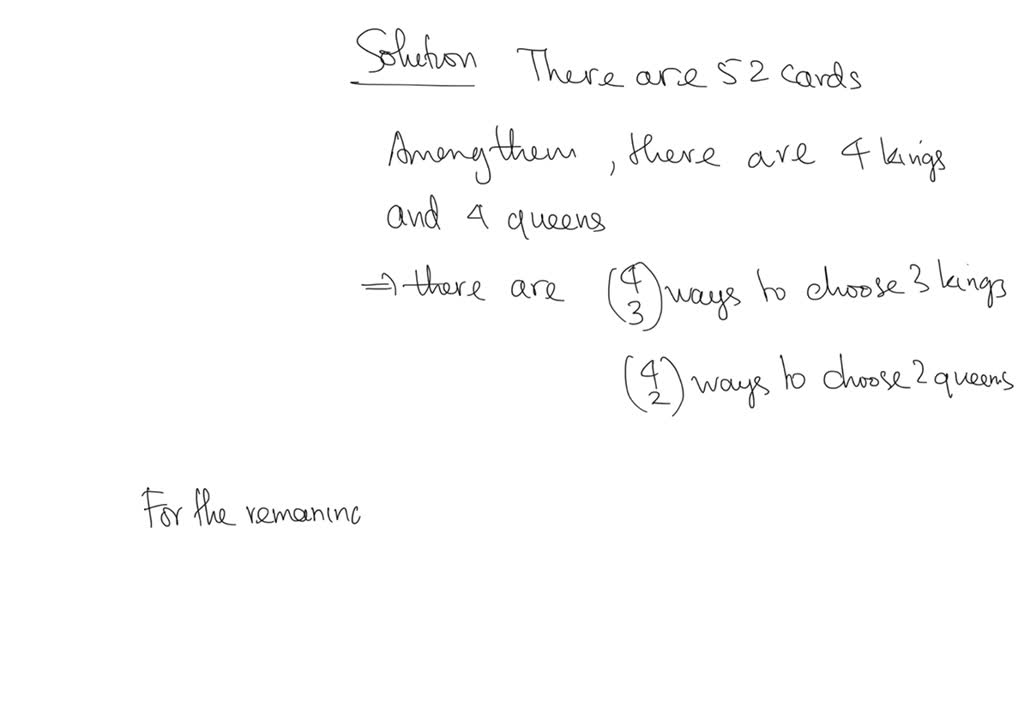 Solution There are 52 cards
Among them, there are 4 kings
and 4 queens
⇒ there are (4 3) ways to choose 3 kings
(4 2) ways to choose 2 queens
For the remaninc